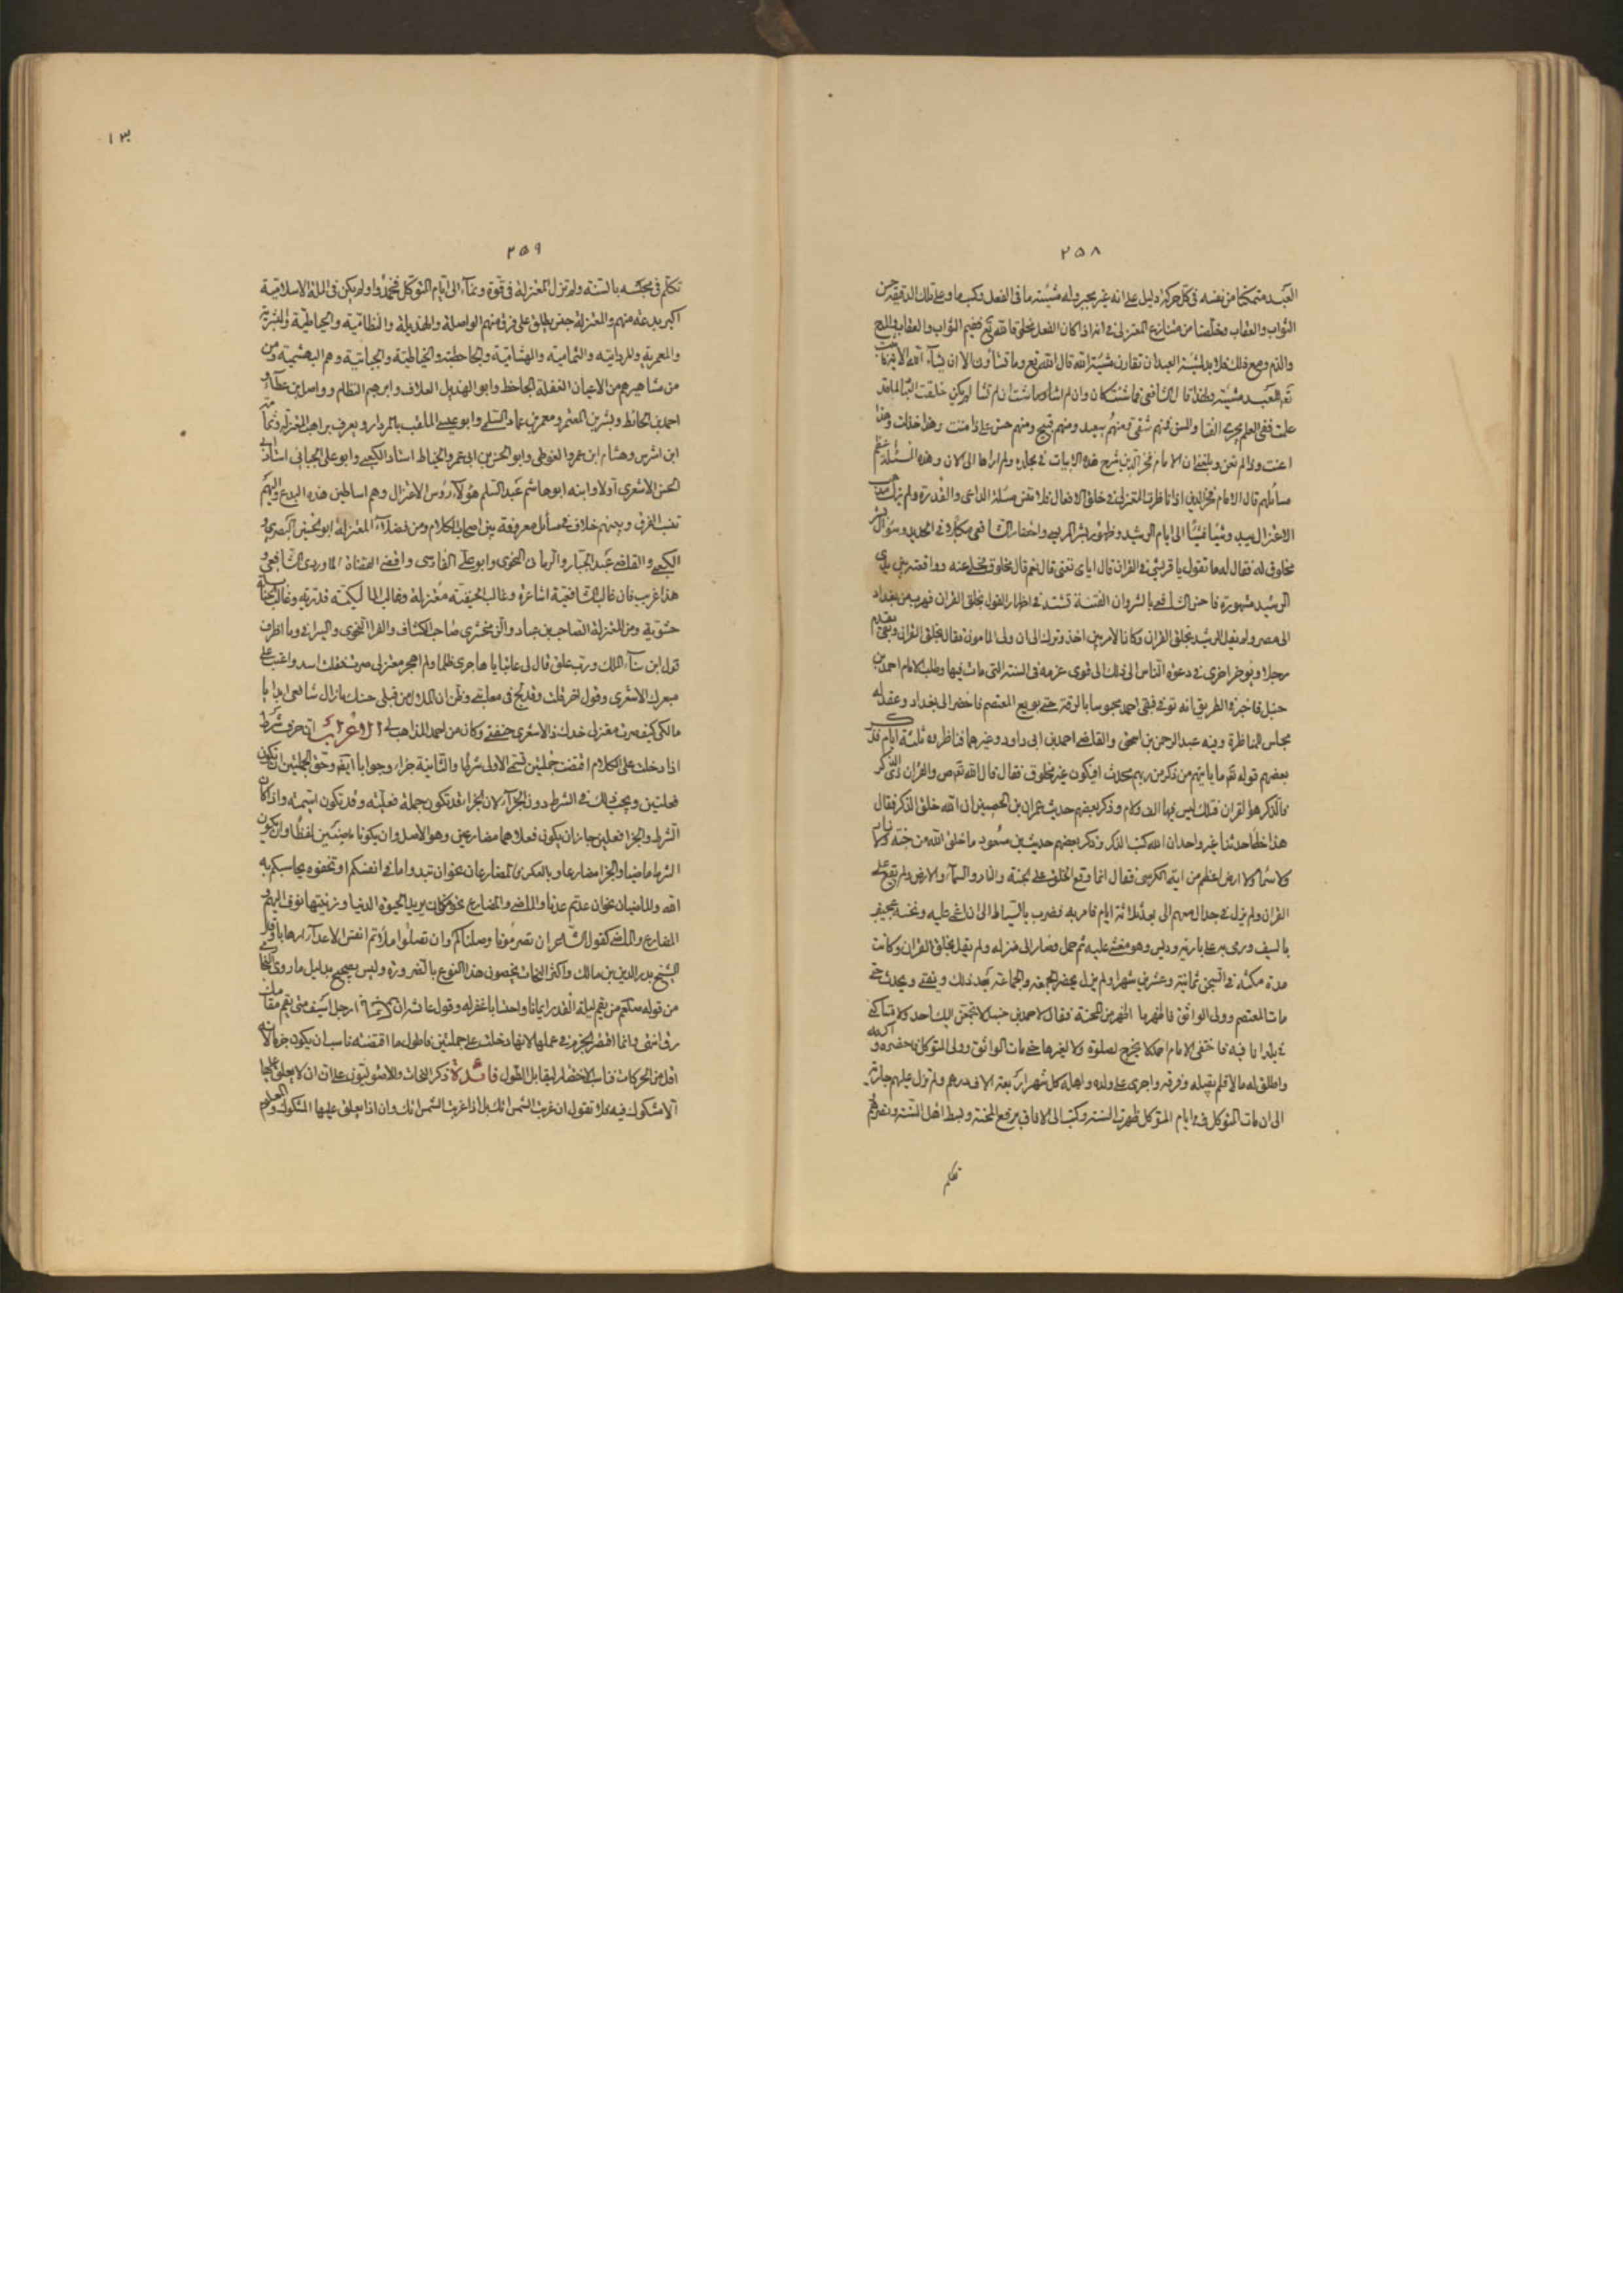 ٢٥٨
العبد متمكنا من نفسه فى كل حركة دليل على انه غير مجبر وله مشيئة ما فى الفعل وكسب ما وعلى تلك الدقيقة حسن
الثواب والعقاب من المعتزلة فى انه اذا كان الفعل بخلق الله تع الثواب والعقاب والمدح
والذم ومع ذلك فلا بد لمشيئة العبد ان تقارن مشيئة الله قال الله تع وما تشاؤن الا ان يشآء الله
للعبد مشيئة ولهذا قال الشافعى فما شئت كان وان لم اشأ وما شئت ان لم تشأ لم يكن خلقت العباد لما قد
علمت ففى العلم يجرى الفتى والمسن فمنهم شقى ومنهم سعيد ومنهم قبيح ومنهم حسن على ذا مننت وهذا خذلت وهذا
اعنت وذا لم تعن وبلغنى ان الامام فخر الدين شرح هذه الابيات فى مجلدة ولم ارها الى الان وهذه المسئلة اعظم
مسائلهم قال الامام فخر الدين اذا ناظرت المعتزلة فى خلق الافعال فلا تعن مسئلة الداعى والقدرة ولم يزل مذهب
الاعتزال يبدو شيئا فشيئا الى ايام الرشيد وظهور بشر المريسى واحضار الشافعى مكبلا فى الحديد وسؤال بشر
مخلوق له فقال له ما تقول يا قرشى فى القران قال اياى تعنى قال نعم قال مخلوق فخلى عنه وواقعته بين يدى
الرشيد مشهورة فاحس الشافعى بالشر وان الفتنة تشتد فى اظهار القول بخلق القران فهرب من بغداد
الى مصر ولم يقل الرشيد بخلق القران وكان الامر بين اخذ وترك الى ان ولى المامون فقال بخلق القران وبقى يقدم
رجلا ويؤخر اخرى فى دعوة الناس الى ذلك الى ان قوى عزمه فى السنة التى مات فيها وطلب الامام احمد بن
حنبل فاخبر فى الطريق انه توفى فبقى احمد محبوسا بالرقة حتى بويع المعتصم فاحضر الى بغداد وعقد له
مجلس المناظرة وفيه عبد الرحمن بن اسحق والقاضى احمد بن ابى داود وغيرهما فناظروه ثلثة ايام
بعضهم قوله تع ما ياتيهم من ذكر من ربهم محدث افيكون غير مخلوق فقال قال الله تع ص والقران ذى الذكر
فالذكر هو القران فتلك ليس فيها الف ولام وذكر بعضهم حديث عمران بن الحصين ان الله خلق الذكر فقال
هذا خطا حدثنا غير واحد ان الله كتب الذكر وذكر بعضهم حديث بن مسعود ما خلق الله من جنة ولا نار
ولا سما ولا ارض اعظم من اية الكرسى فقال انما وقع الخلق على الجنة والنار والسمآء والارض ولم يقع على
القران ولم يزل فى جدال معهم الى بعد ثلاثة ايام فامر به فضرب بالسياط الى ان اغمى عليه ونخسه عجيف
بالسيف ورمى عليه بارية وديس وهو مغشى عليه ثم حمل وصار الى منزله ولم يقل بخلق القران وكانت
مدة مكثه فى السجن ثمانية وعشرين شهرا ولم يزل يحضر الجمعة والجماعة بعد ذلك ويفتى ويحدث حتى
مات المعتصم وولى الواثق فاظهر ما اظهر من المحنة فقال لاحمد بن حنبل لا تجمعن اليك احدا ولا تساكنى
فى بلد انا فيه فاختفى الامام احمد لا يخرج لصلوة ولا لغيرها حتى مات الواثق وولى المتوكل فاحضره واكرمه
واطلق له مالا فلم يقبله وفرقه واجرى على ولده واهله كل شهر اربعة الاف درهم ولم تزل عليهم جارية
الى ان مات المتوكل فى ايام المتوكل ظهرت السنة وكتب الى الافاق برفع المحنة وبسط اهل السنة ونصرهم
تكلم
٢٥٩
تكلم فى مجلسه بالسنة ولم تزل المعتزلة فى قوة ونمآء الى ايام المتوكل فخمدوا ولم يكن فى الملة الاسلامية
اكبر بدعة منهم والمعتزلة جنس يطلق على فرق منهم الواصلية والهذيلية والنظامية والحايطية والبشرية
والمعمرية والمردارية والثمامية والهشامية والجاحظية والخياطية والجبائية وهم البهشمية ومن
من مشاهيرهم من الاعيان الجاحظ وابو الهذيل العلاف وابرهيم النظام وواصل بن عطآء و
احمد بن الحائط وبشر بن المعتمر ومعمر بن عباد السلمى وابو عيسى الملقب بالمردار ويعرف براهب المعتزلة وثمامة
ابن اشرس وهشام ابن عمرو الفوطى وابو الحسن بن ابى عمرو الخياط استاد الكعبى وابو على الجبائى استاذ ابى
الحسن الاشعرى اولا وابنه ابو هاشم عبد السلم هؤلآء رؤس الاعتزال وهم اساطين هذه البدع واليهم
تنسب الفرق وبينهم خلاف فى مسائل معروفة بين اصحاب الكلام ومن فضلآء المعتزلة ابو الحسين البصرى و
الكعبى والقاضى عبد الجبار والرمانى النحوى وابو على الفارسى واقضى القضاة الماوردى الشافعى و
هذا غريب فان غالب الشافعية اشاعرة وغالب الحنفية معتزلة وغالب المالكية قدرية وغالب الحنابلة
حشوية ومن المعتزلة الصاحب بن عباد والزمخشرى صاحب الكشاف والفرا النحوى والسيرافى وما اظرف
قول ابن سنآء الملك
مالكى كيف صرت معتزلى خدك ذا الاشعرى حنفنى وكان من احمد المذاهب لى الاعراب ان حرف شرط
اذا دخلت على الكلام اقتضت جملتين تسمى الاولى شرطا والثانية جزاء وجوابا ايضا وحق الجملتين ان يكون
فعليتين ويجب ذلك فى الشرط دون الجزآء لان الجزا قد تكون جملة فعلية وقد تكون اسمية واذا كان
الشرط والجزا فعلين جاز ان يكون فعلاهما مضارعين وهو الاصل وان يكونا ماضيين لفظا وان يكون
الشرط ماضيا والجزا مضارعا وبالعكس فالمضارعان نحو ان تبدوا ما فى انفسكم او تخفوه يحاسبكم به
الله والماضيان نحو ان عدتم عدنا والماضى والمضارع نحو من كان يريد الحيوة الدنيا وزينتها نوف اليهم
المضارع والماضى كقول الشاعر ان تصرمونا وصلناكم وان تصلوا ملأتم انفس الاعدآء ارهابا وقد
الشيخ بدر الدين بن مالك واكثر النحاة يخصون هذا النوع بالضرورة وليس بصحيح بدليل ما رواه البخارى
من قوله صلعم من يقم ليلة القدر ايمانا واحتسابا غفر له وقول عائشة ان ابا بكر رجل اسيف متى يقم مقامك
رق انتهى وانما اختص الجزم فى عملها لانها دخلت على جملتين فاطول ما اقتضته ناسب ان يكون جزما لانه
اقل من الحركات فناسب الاختصار ليقابل الطول فائدة ذكر النحاة والاصوليون على ان ان لا يعلق عليها
الا مشكوك فيه فلا تقول ان غربت الشمس اتك بل اذا غربت الشمس اتك وان اذا يعلق عليها المشكوك والمعلوم